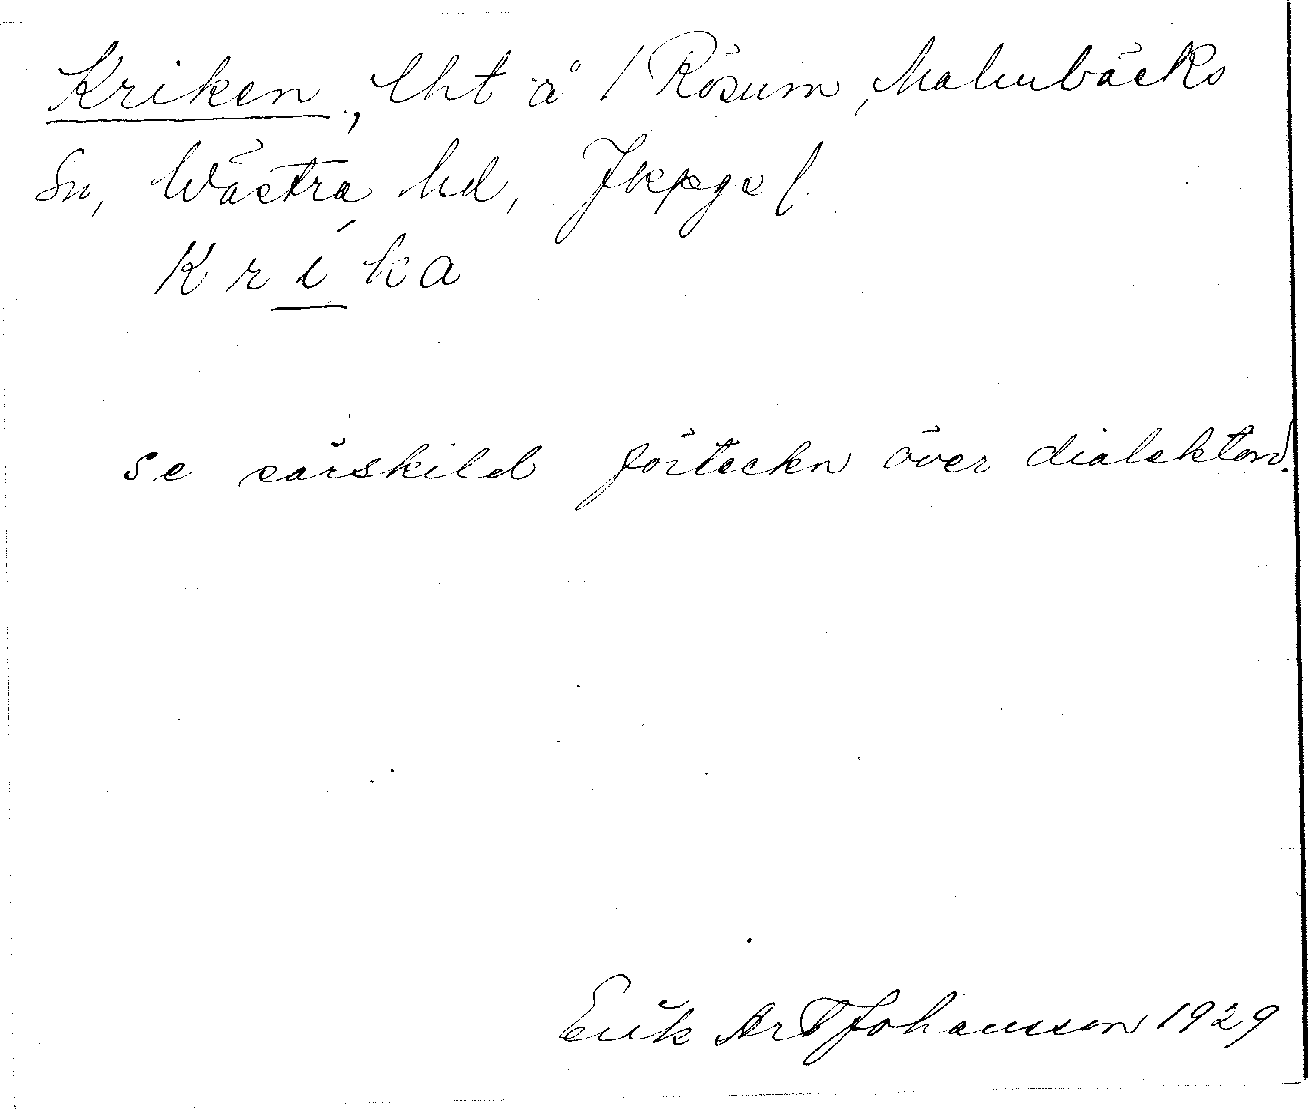 Kriken, lht å / Rösum, Malmbäcks
Sn, Västra hd, Jkpgs l.
Kríka
se särskild förteckn över dialektord.
Erik Art Johansson 1929